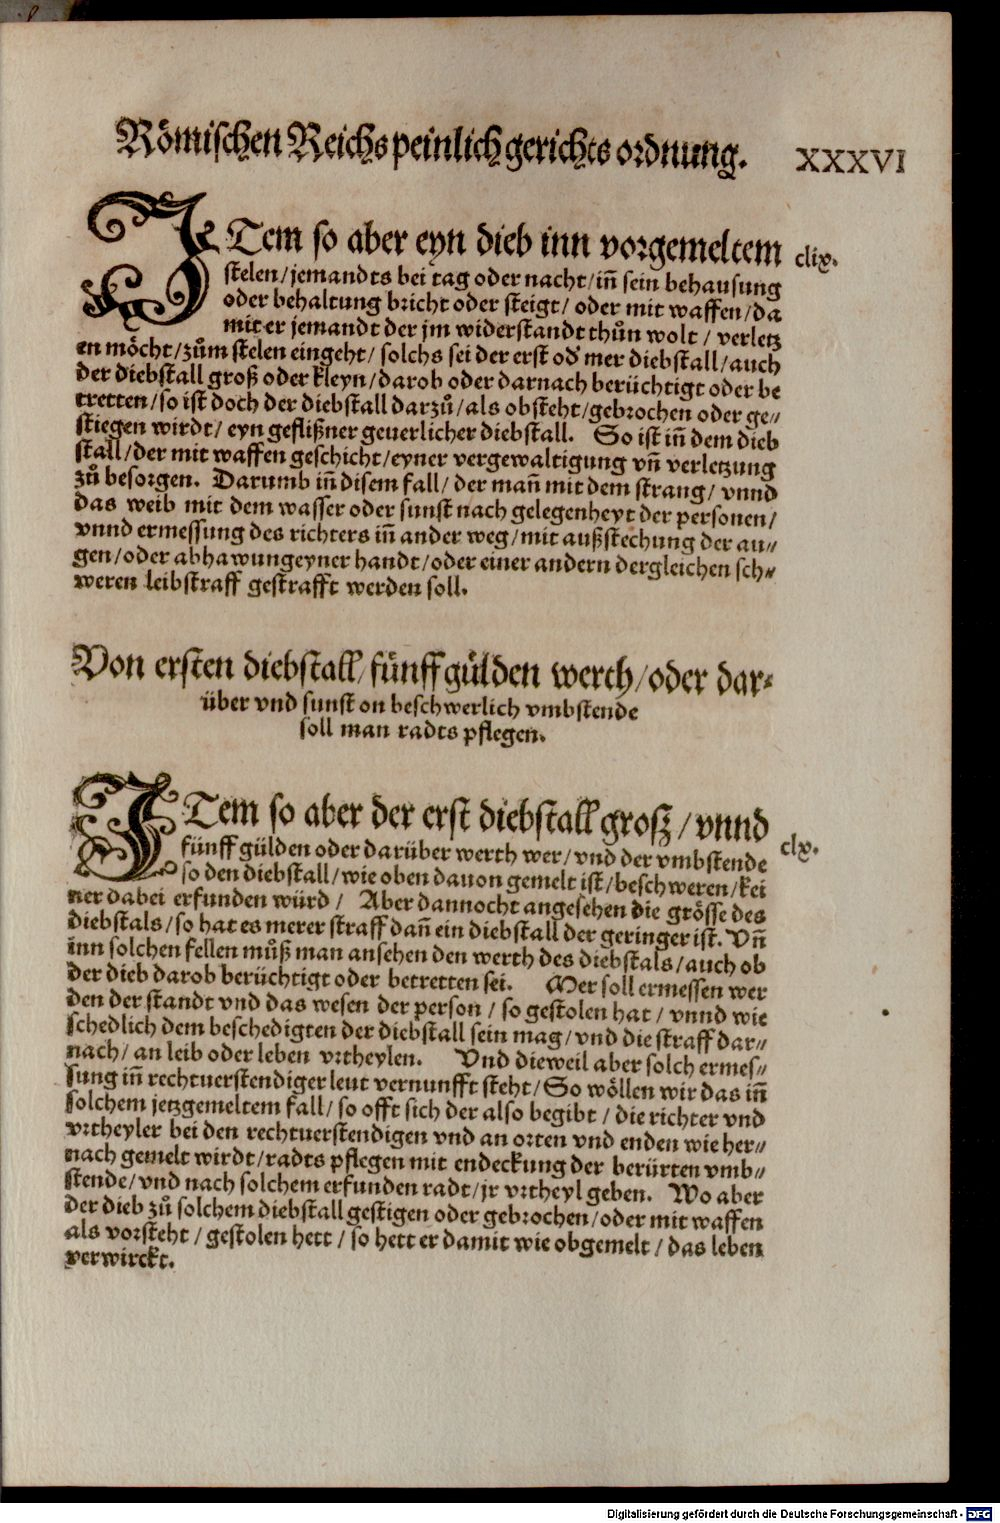 Römischen Reichs peinlich gerichts ordnung. XXXVI
ITem so aber eyn dieb inn vorgemeltem clix.
stelen/jemandts bei tag oder nacht/iñ sein behausung
oder behaltung bricht oder steigt/ oder mit waffen/da
mit er jemandt der jm widerstandt thůn wolt / verletz
en möcht/zům stelen eingeht/ solchs sei der erst od' mer diebstall/auch
der diebstall groß oder kleyn/darob oder darnach berüchtigt oder be
tretten/so ist doch der diebstall darzů/als obsteht/gebrochen oder ge⸗
stiegen wirdt/ eyn geflißner geuerlicher diebstall. So ist iñ dem dieb
stall/der mit waffen geschicht/eyner vergewaltigung vñ verletzung
zů besorgen. Darumb iñ disem fall/ der mañ mit dem strang/ vnnd
das weib mit dem wasser oder sunst nach gelegenheyt der personen/
vnnd ermessung des richters iñ ander weg/mit außstechung der au⸗
gen/oder abhawungeyner handt/oder einer andern dergleichen sch⸗
weren leibstraff gestrafft werden soll.
Von ersten diebstall/fünff gülden werth/oder dar⸗
über vnd sunst on beschwerlich vmbstende
soll man radts pflegen.
ITem so aber der erst diebstall groß/vnnd
fünff gülden oder darüber werth wer/vnd der vmbstende clx.
so den diebstall/wie oben dauon gemelt ist/beschweren/kei
ner dabei erfunden würd / Aber dannocht angesehen die grösse des
diebstals/so hat es merer straff dañ ein diebstall der geringer ist. Vñ
inn solchen fellen můß man ansehen den werth des diebstals/auch ob
der dieb darob berüchtigt oder betretten sei. Mer soll ermessen wer
den der standt vnd das wesen der person / so gestolen hat / vnnd wie
schedlich dem beschedigten der diebstall sein mag/vnd die straff dar⸗
nach/ an leib oder leben vrtheylen. Vnd dieweil aber solch ermes⸗
sung iñ rechtuerstendiger leut vernunfft steht/So wöllen wir das iñ
solchem jetzgemeltem fall/so offt sich der also begibt / die richter vnd
vrtheyler bei den rechtuerstendigen vnd an orten vnd enden wie her⸗
nach gemelt wirdt/radts pflegen mit endeckung der berürten vmb⸗
stende/vnd nach solchem erfunden radt/jr vrtheyl geben. Wo aber
der dieb zů solchem diebstall gestigen oder gebrochen/oder mit waffen
als vorsteht / gestolen hett / so hett er damit wie obgemelt / das leben
verwirckt.
Digitalisierung gefördert durch die Deutsche Forschungsgemeinschaft - DFG